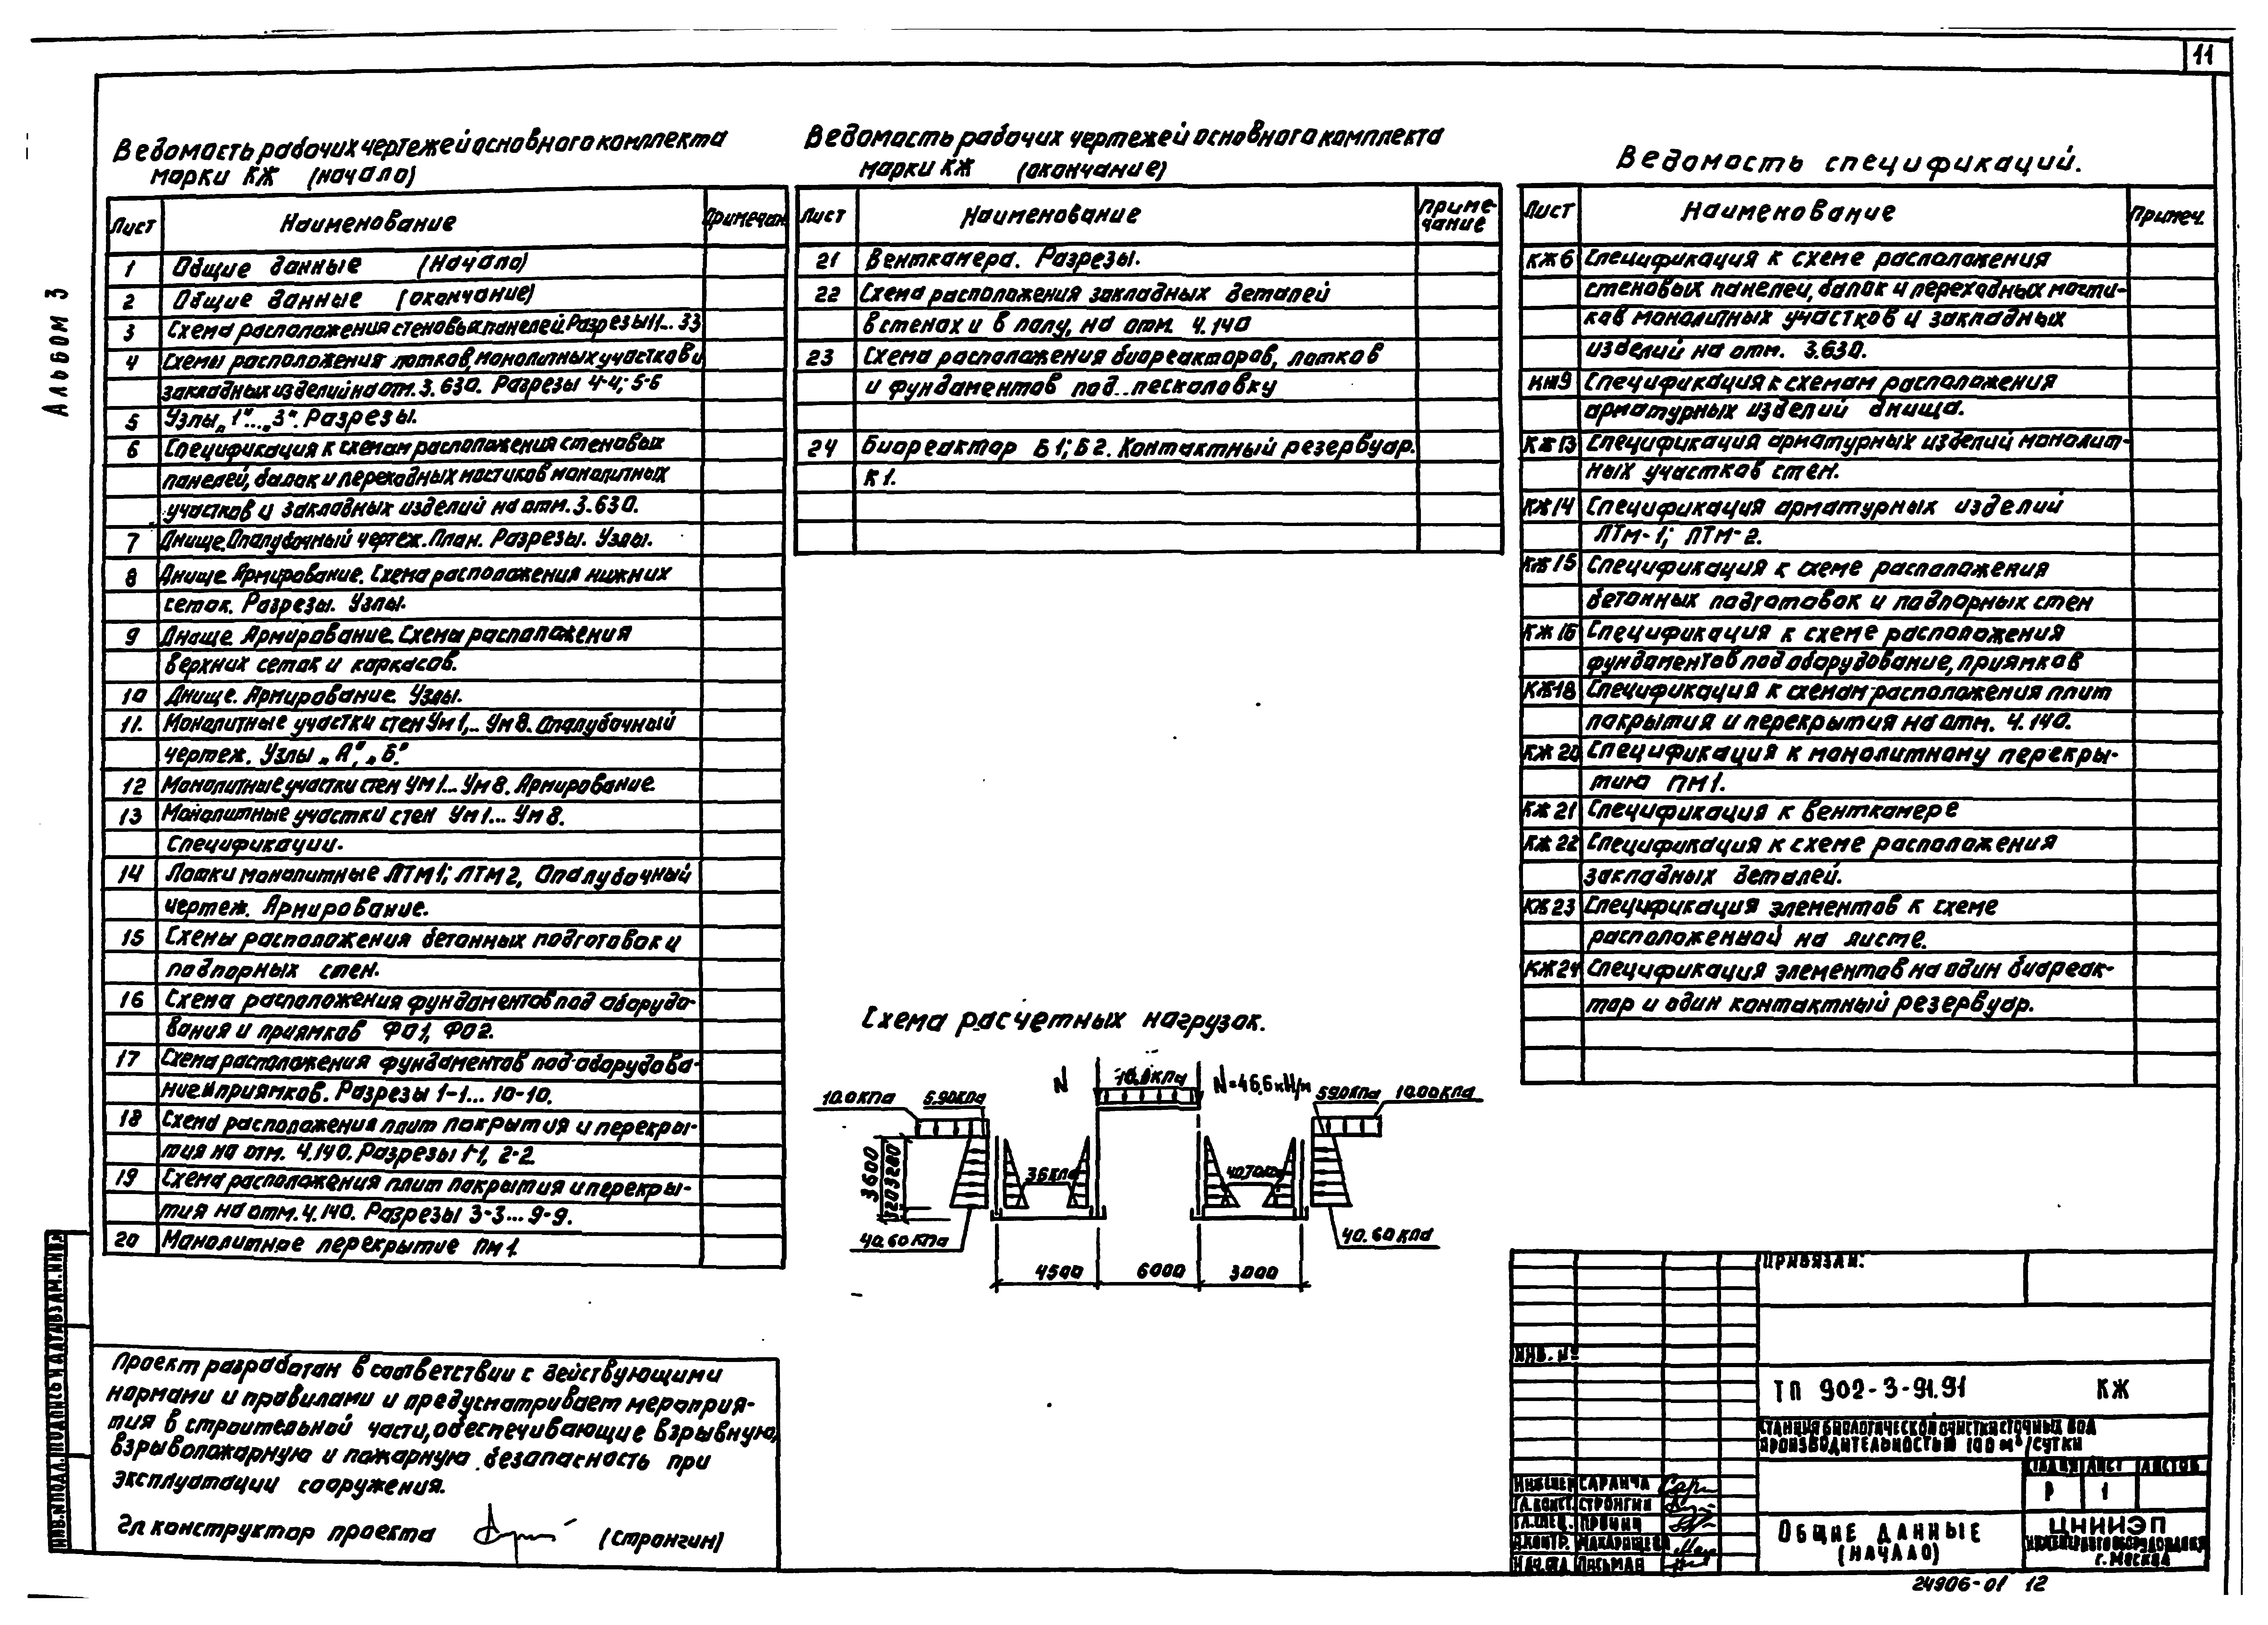 11
Альбом 3
Ведомость рабочих чертежей основного комплекта
марки КЖ (начало)
Лист Наименование Примечан.
1 Общие данные (начало)
2 Общие данные (окончание)
3 Схема расположения стеновых панелей. Разрезы 1-1... 3-3
4 Схемы расположения лотков, монолитных участков и
закладных изделий на отм. 3.630. Разрезы 4-4; 5-6
5 Узлы „1"... „3". Разрезы.
6 Спецификация к схемам расположения стеновых
панелей, балок и переходных мостиков монолитных
участков и закладных изделий на отм. 3.630.
7 Днище. Опалубочный чертеж. План. Разрезы. Узлы.
8 Днище. Армирование. Схема расположения нижних
сеток. Разрезы. Узлы.
9 Днище. Армирование. Схемы расположения
верхних сеток и каркасов.
10 Днище. Армирование. Узлы.
11. Монолитные участки стен Ум1,... Ум8. Опалубочный
чертеж. Узлы „А", „Б".
12 Монолитные участки стен Ум1... Ум8. Армирование.
13 Монолитные участки стен Ум1... Ум8.
Спецификации.
14 Лотки монолитные ЛТМ1; ЛТМ2, Опалубочный
чертеж. Армирование.
15 Схемы расположения бетонных подготовок и
подпорных стен.
16 Схема расположения фундаментов под оборудо-
вания и приямков ФО1, ФО2.
17 Схема расположения фундаментов под оборудова-
ние и приямков. Разрезы 1-1... 10-10.
18 Схема расположения плит покрытия и перекры-
тия на отм. 4.140. Разрезы 1-1, 2-2.
19 Схема расположения плит покрытия и перекры-
тия на отм. 4.140. Разрезы 3-3... 9-9.
20 Монолитное перекрытие Пм1.
Ведомость рабочих чертежей основного комплекта
марки КЖ (окончание)
Лист Наименование Приме-
чание
21 Венткамера. Разрезы.
22 Схема расположения закладных деталей
в стенах и в полу, на отм. 4.140
23 Схема расположения биореакторов, лотков
и фундаментов под песколовку
24 Биореактор Б1; Б2. Контактный резервуар.
К1.
Ведомость спецификаций.
Лист Наименование Примеч.
КЖ6 Спецификация к схеме расположения
стеновых панелей, балок и переходных мости-
ков монолитных участков и закладных
изделий на отм. 3.630.
КЖ9 Спецификация к схемам расположения
арматурных изделий днища.
КЖ13 Спецификация арматурных изделий монолит-
ных участков стен.
КЖ14 Спецификация арматурных изделий
ЛТМ-1; ЛТМ-2.
КЖ15 Спецификация к схеме расположения
бетонных подготовок и подпорных стен
КЖ16 Спецификация к схеме расположения
фундаментов под оборудование, приямков
КЖ18 Спецификация к схемам расположения плит
покрытия и перекрытия на отм. 4.140.
КЖ20 Спецификация к монолитному перекры-
тию ПМ1.
КЖ21 Спецификация к венткамере
КЖ22 Спецификация к схеме расположения
закладных деталей.
КЖ23 Спецификация элементов к схеме
расположенной на листе.
КЖ24 Спецификация элементов на один биореак-
тор и один контактный резервуар.
Схема расчетных нагрузок.
N 10.0 кПа N=46,6 кН/м
10.0 кПа 5.90 кПа 5.90 кПа 10.00 кПа
3600 320 3280
36 кПа
40.60 кПа 40.60 кПа
4500 6000 3000
Проект разработан в соответствии с действующими
нормами и правилами и предусматривает мероприя-
тия в строительной части, обеспечивающие взрывную,
взрывопожарную и пожарную безопасность при
эксплуатации сооружения.
Гл конструктор проекта (Стронгин)
ИНВ.№ПОДЛ. ПОДПИСЬ И ДАТА ВЗАМ.ИНВ.№
ПРИВЯЗАН:
ИНВ. №
ТП 902-3-91.91 КЖ
СТАНЦИЯ БИОЛОГИЧЕСКОЙ ОЧИСТКИ СТОЧНЫХ ВОД
ПРОИЗВОДИТЕЛЬНОСТЬЮ 100 м³/СУТКИ
СТАДИЯ ЛИСТ ЛИСТОВ
Р 1
ИНЖЕНЕР САРАНЧА
ГЛ.КОНСТ. СТРОНГИН
ГЛ.СПЕЦ. ПРОНИН
Н.КОНТР.
НАЧ.ОТД. ПИСЬМАН
ОБЩИЕ ДАННЫЕ
(НАЧАЛО)
ЦНИИЭП
ИНЖЕНЕРНОГО ОБОРУДОВАНИЯ
г. МОСКВА
24906-01 12